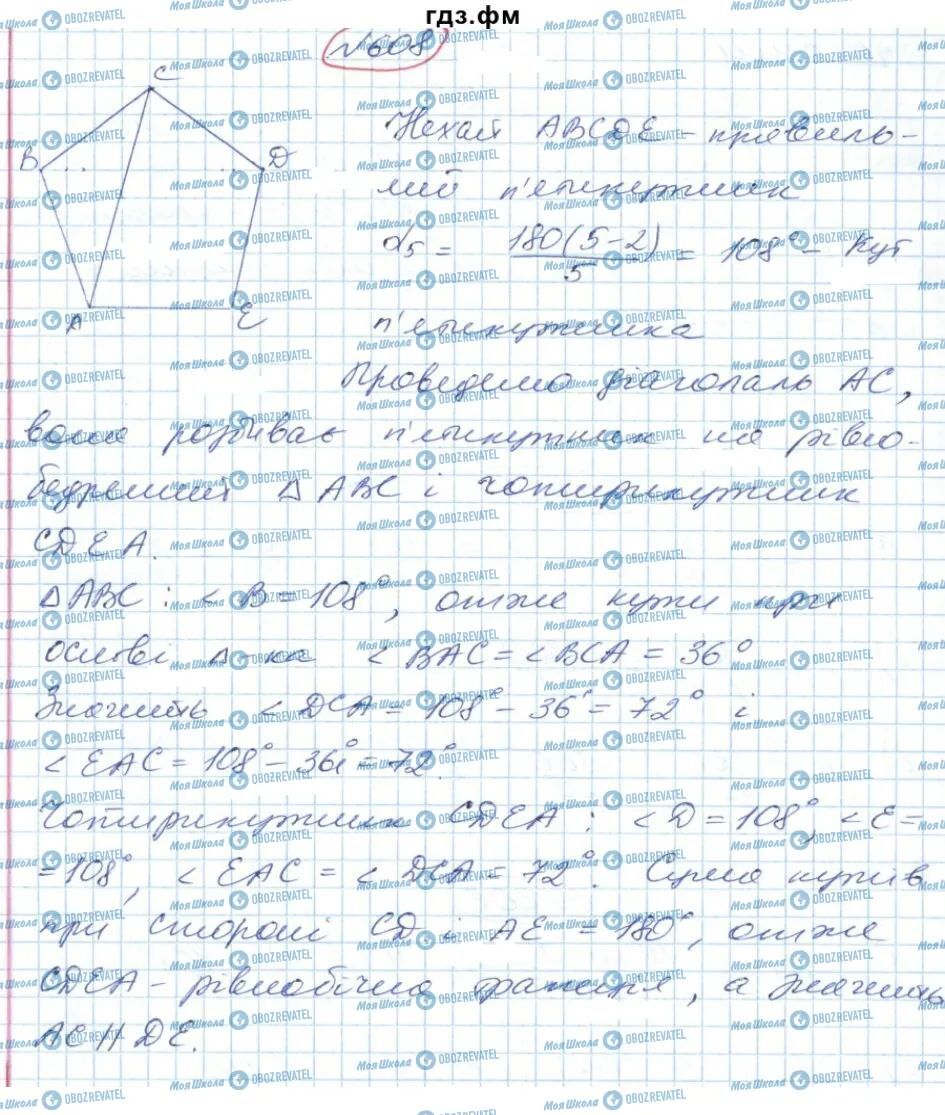 гдз.фм
№608
C
B
D
A
E
Нехай ABCDE - правиль-
ний п'ятикутник
α₅ = 180(5-2)/5 = 108° - кут
п'ятикутника
Проведемо діагональ AC,
вона розбиває п'ятикутник на рівно-
бедренний △ ABC і чотирикутник
CDEA.
△ABC : <B = 108°, отже кути при
основі △-ка <BAC = <BCA = 36°
Значить <DCA = 108° - 36° = 72° і
<EAC = 108° - 36° = 72°.
Чотирикутник CDEA : <D = 108°, <E =
= 108°, <EAC = <DCA = 72°. Сума кутів
при стороні CD і AE = 180°, отже
CDEA - рівнобічна трапеція, а значить
AC || DE.
МояШкола OBOZREVATEL